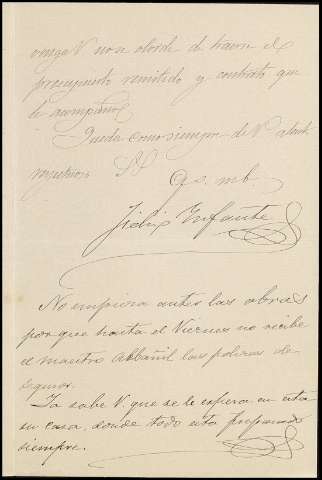 venga V. no se olvide de traerse el
presupuesto remitido y contrato que
le acompaña.
Queda como siempre de V. afectí
mo S. S.
Q. s. m. b.
Felix Infante
No empieza antes las obras
por que hasta el Viernes no recibe
el maestro Albañil las polizas de
seguros.
Ya sabe V. que se le espera en esta
su casa, donde todo esta preparado
siempre.